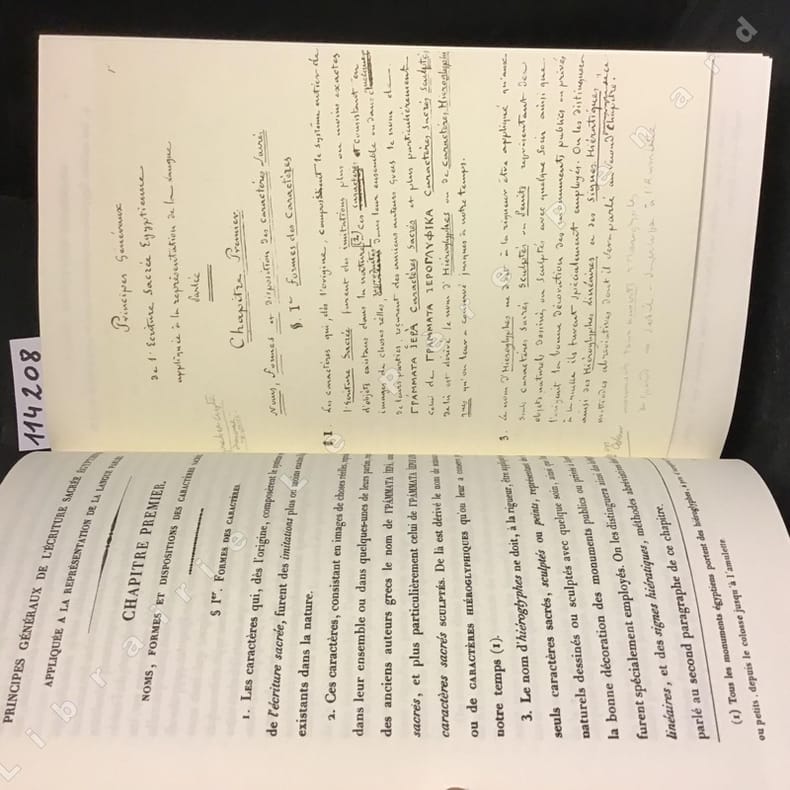 114208
Principes Généraux
de l'Ecriture Sacrée Egyptienne
appliquée à la représentation de la langue
Parlée
Chapitre Premier
Noms, Formes et disposition des caractères sacrés
§. Ier Formes des Caractères
§ 1 Les caractères qui, dès l'origine, composèrent le système entier de
l'Ecriture Sacrée furent des imitations plus ou moins exactes
d'objets existans dans la nature. Ces caractères, consistant en
images de choses réelles, dans leur ensemble ou dans quelques
de leurs parties, reçurent des anciens auteurs grecs le nom de
ΓΡΑΜΜΑΤΑ ΙΕΡΑ Caractères Sacrés et plus particulièrement
celui de ΓΡΑΜΜΑΤΑ ΙΕΡΟΓΛΥΦΙΚΑ Caractères sacrés sculptés;
De là est dérivé le nom d'Hiéroglyphes ou de caractères Hiéroglyphi
ques qu'on leur a conservé jusques à notre temps.
3. Le nom d'Hiéroglyphes ne doit à la rigueur être appliqué qu'aux
seuls caractères Sacrés Sculptés ou Peints représentant des
objets naturels dessinés, ou sculptés avec quelque soin ainsi que
l'exigeait la bonne décoration des monuments publics ou privés
à laquelle ils furent spécialement employés. On les distinguera
ainsi des Hiéroglyphes linéaires et des Signes Hiératiques,
méthodes abréviatives dont il sera parlé au second Chapitre.
PRINCIPES GÉNÉRAUX DE L'ÉCRITURE SACRÉE
APPLIQUÉE A LA REPRÉSENTATION DE LA LANGUE
CHAPITRE PREMIER.
NOMS, FORMES ET DISPOSITIONS DES CARACTÈRES
§ Ier. FORMES DES CARACTÈRES
1. LES caractères qui, dès l'origine, composèrent le
de l'écriture sacrée, furent des imitations plus ou moins
existants dans la nature.
2. Ces caractères, consistant en images de choses réelles,
dans leur ensemble ou dans quelques-unes de leurs parties,
des anciens auteurs grecs le nom de ΓΡΑΜΜΑΤΑ ΙΕΡΑ,
sacrés, et plus particulièrement celui de ΓΡΑΜΜΑΤΑ
caractères sacrés SCULPTÉS. De là est dérivé le nom de
ou de CARACTÈRES HIÉROGLYPHIQUES qu'on leur a
notre temps (1).
3. Le nom d'hiéroglyphes ne doit, à la rigueur, être
seuls caractères sacrés, sculptés ou peints,
naturels dessinés ou sculptés avec quelque soin, ainsi
la bonne décoration des monuments publics ou privés
furent spécialement employés. On les distinguera ainsi
linéaires, et des signes hiératiques, méthodes
parlé au second paragraphe de ce chapitre.
(1) Tous les monuments égyptiens portent des hiéroglyphes,
ou petits, depuis le colosse jusqu'à l'amulette.